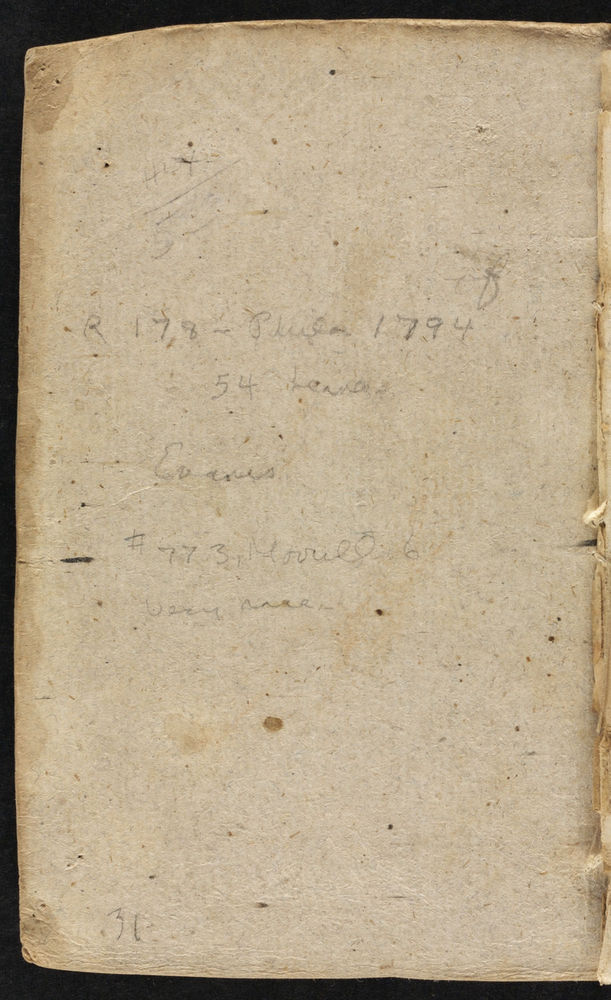 R 178 - Phila 1794
54 leaves
Evans
# 773, Morrell 6
Very rare.
31